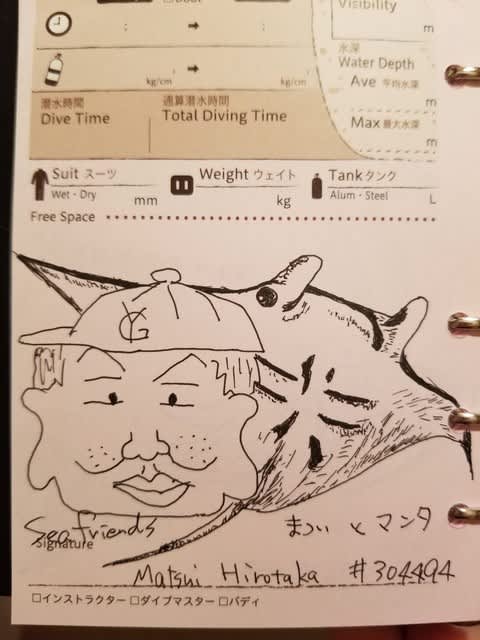 Boat
: → :
kg/cm² → kg/cm²
Visibility
m
水深
Water Depth
Ave 平均水深
m
Max 最大水深
m
潜水時間 通算潜水時間
Dive Time Total Diving Time
Suit スーツ Weight ウェイト Tank タンク
Wet・Dry mm kg Alum・Steel L
Free Space
YG
Sea friends
まつい と マンタ
Signature
Matsui Hirotaka #304494
□インストラクター □ダイブマスター □バディ